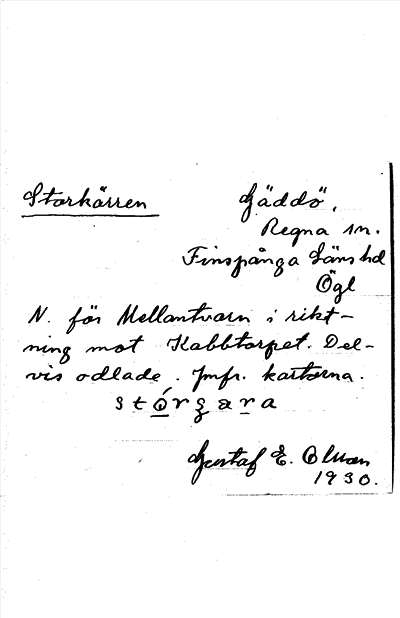 Storkärren
Gäddö,
Regna sn.
Finspånga Läns hd
Ögl
N. för Mellantvarn i rikt-
ning mot Kabbtorpet. Del-
vis odlade. Jmfr. kartorna.
Gustaf E.
1930.